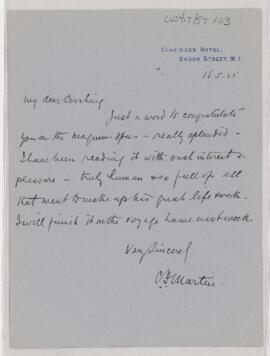 CUS417/57/103
CLARIDGE'S HOTEL,
BROOK STREET, W.1.
16.5.25
My dear Cushing
Just a word to congratulate
you on the magnum opus - really splendid -
I have been reading it with much interest &
pleasure - truly human & so full of all
that went to make up his great life & work.
I will finish it on the voyage home next week.
Very Sincerely
C F Martin